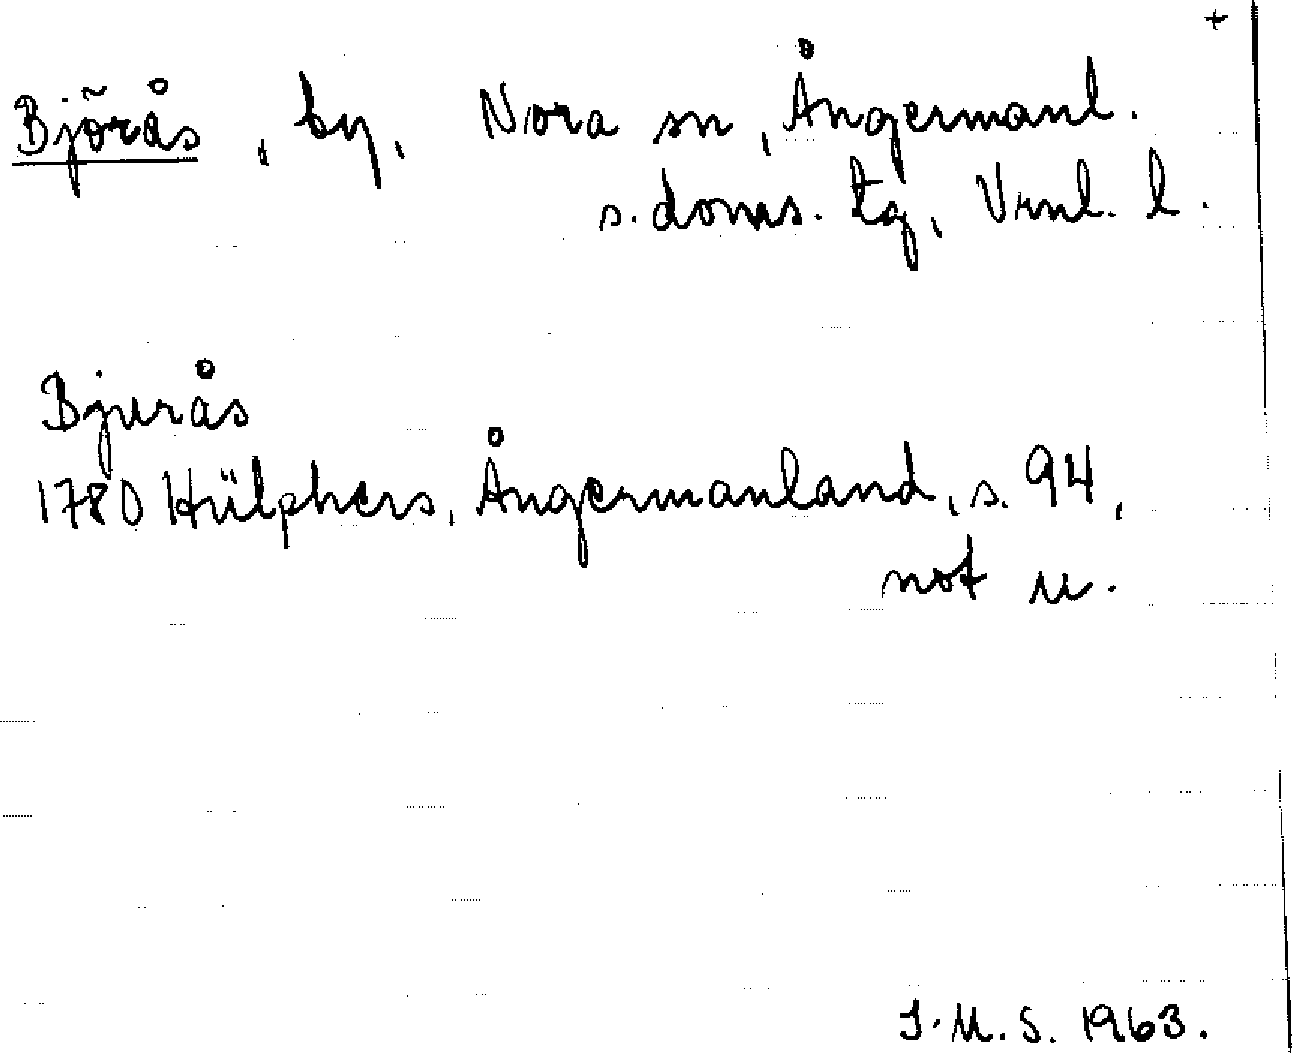 +
Björås, by, Nora sn, Ångermanl.
s. doms. tg, Vrnl. l.
Bjurås
1780 Hülphers, Ångermanland, s. 94,
not u.
I.M.S. 1963.